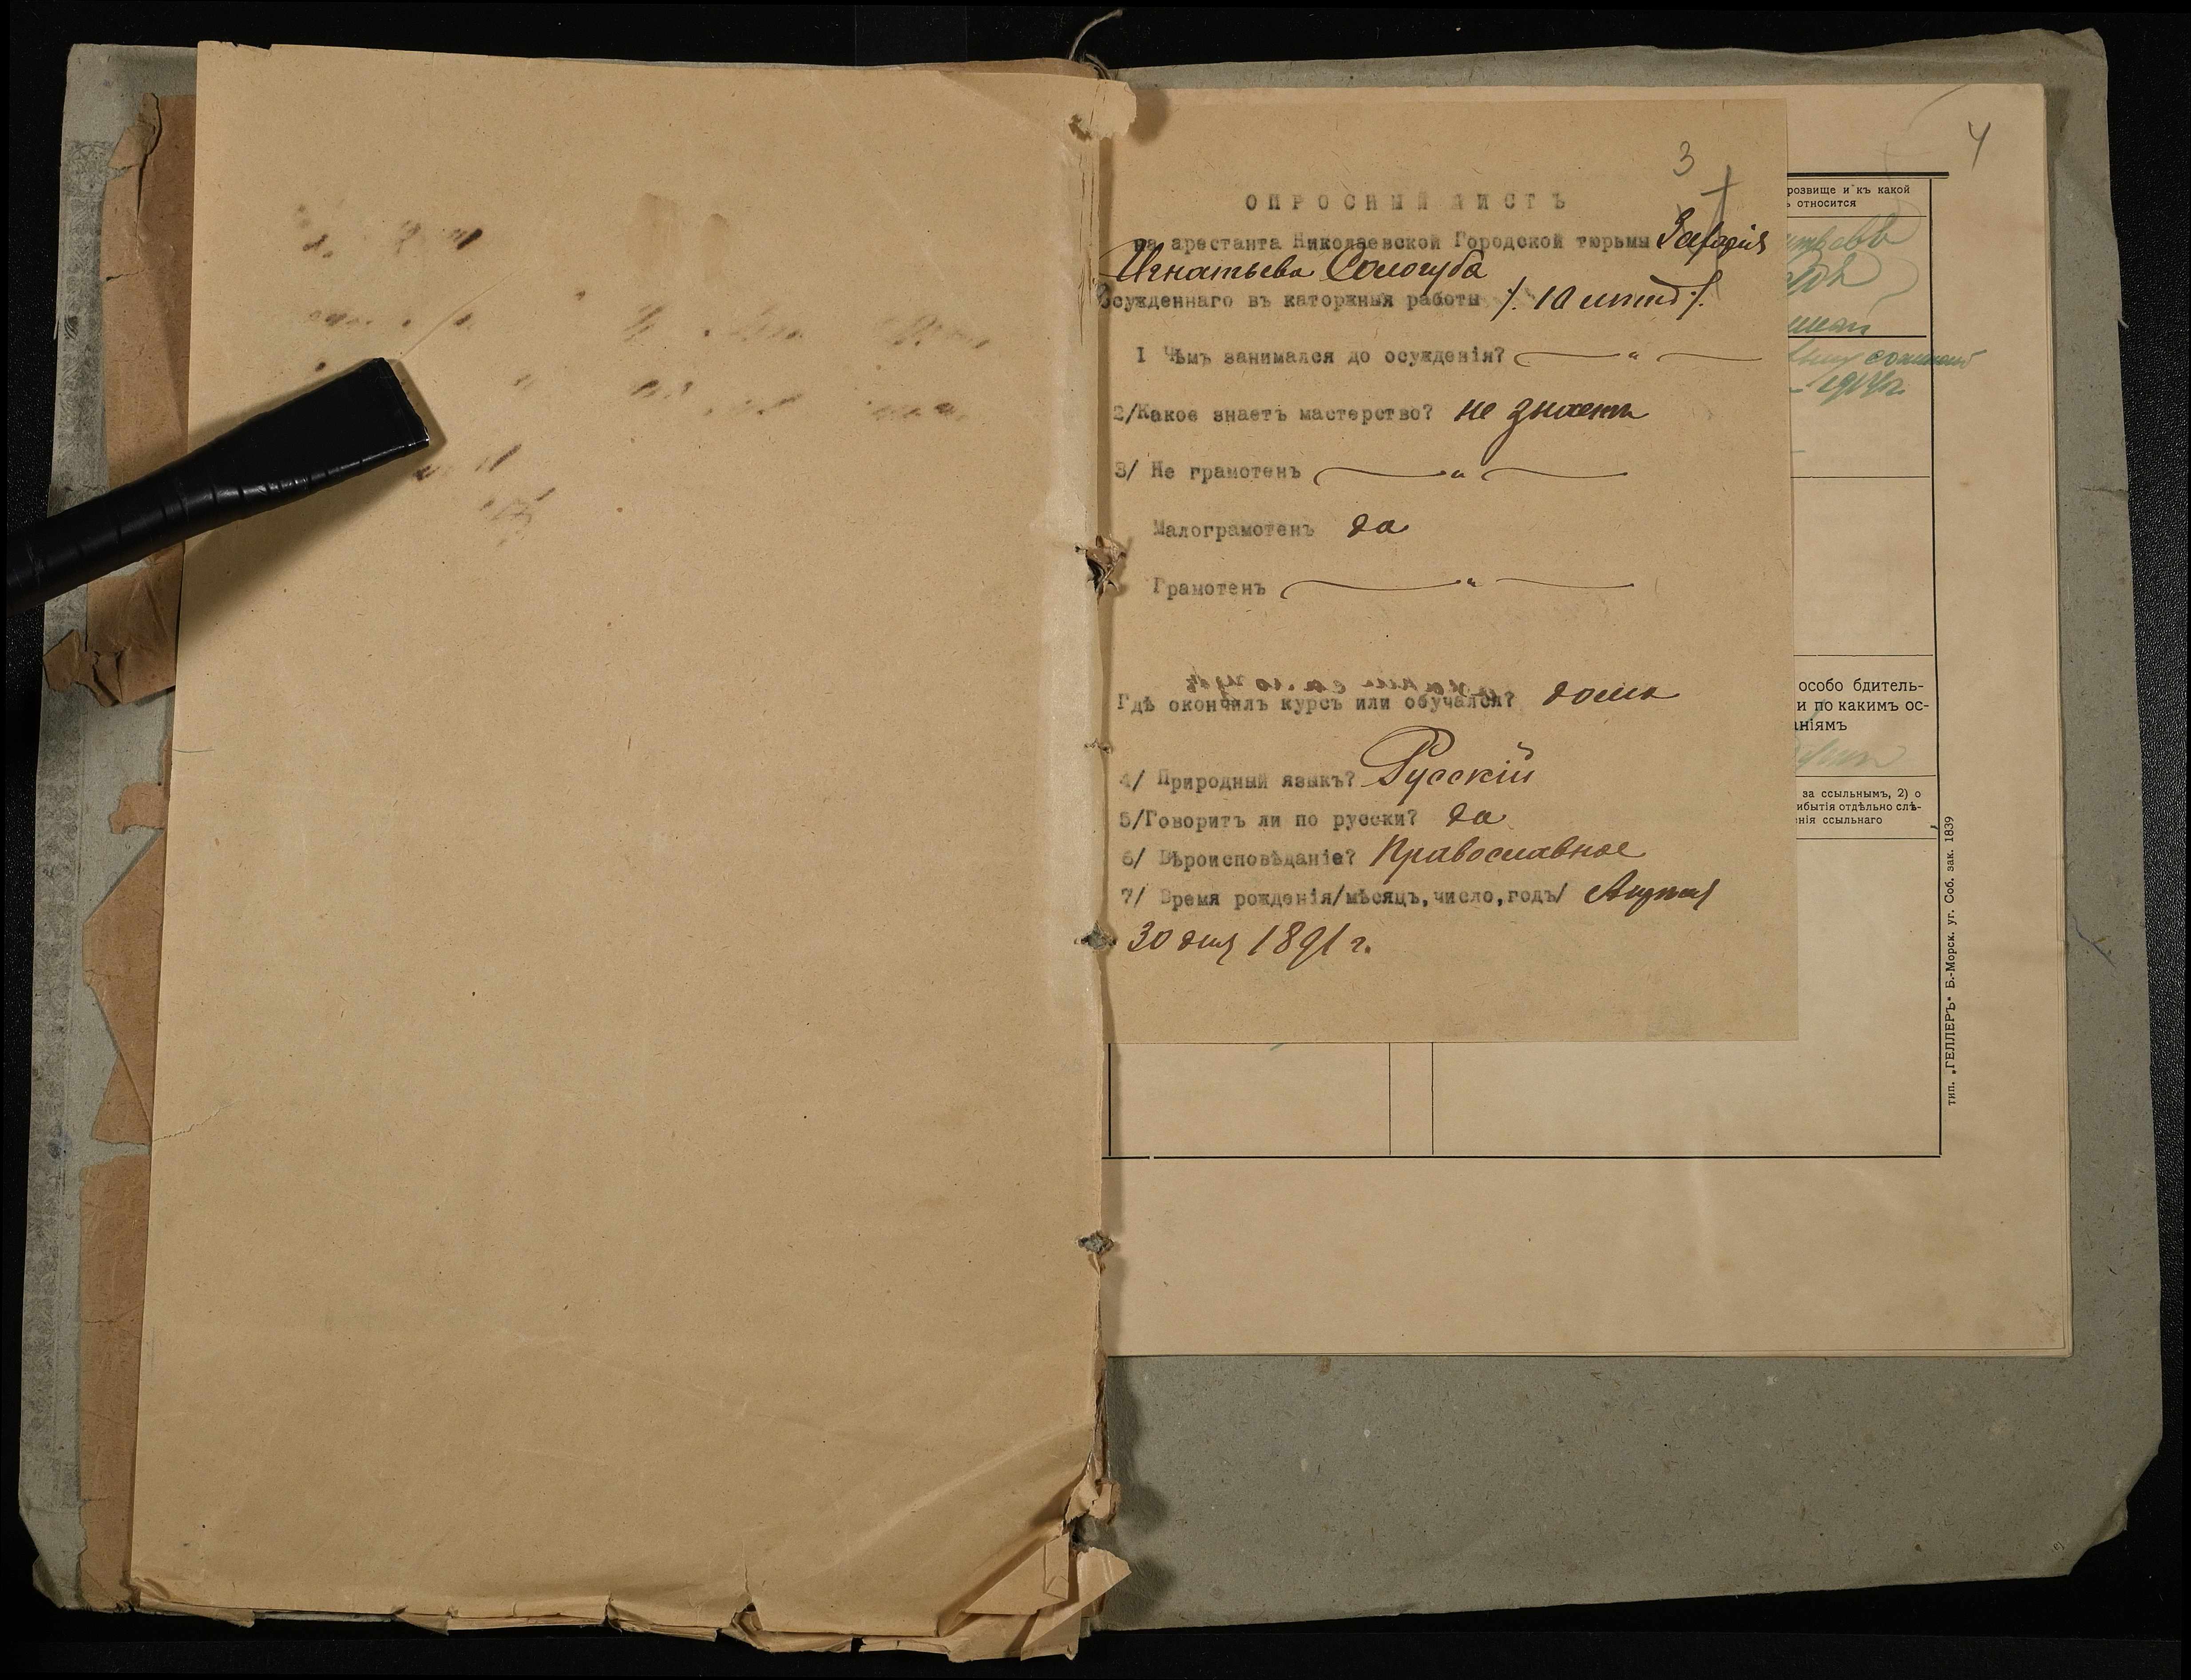 3
4
ОПРОСНЫЙ ЛИСТЪ
на арестанта Николаевской Городской тюрьмы Захарія
Игнатьева Сологуба
Осужденнаго въ каторжныя работы /. 10 лѣтъ /.
I Чѣмъ занимался до осужденія? — „ —
2/Какое знаетъ мастерство? не знаетъ
3/ Не грамотенъ — „ —
Малограмотенъ да
Грамотенъ — „ —
Гдѣ окончилъ курсъ или обучался? дома
4/ Природный языкъ? Русскій
5/Говоритъ ли по русски? да
6/ Вѣроисповѣданіе? Православное
7/ Время рожденія/мѣсяцъ,число,годъ/
30 дня 1891 г.
розвище и къ какой
относится
особо бдитель-
и по какимъ ос-
аніямъ
за ссыльнымъ, 2) о
ибытія отдѣльно слѣ-
нія ссыльнаго
тип. „ГЕЛЛЕРЪ" Б.-Морск. уг. Соб. зак. 1839